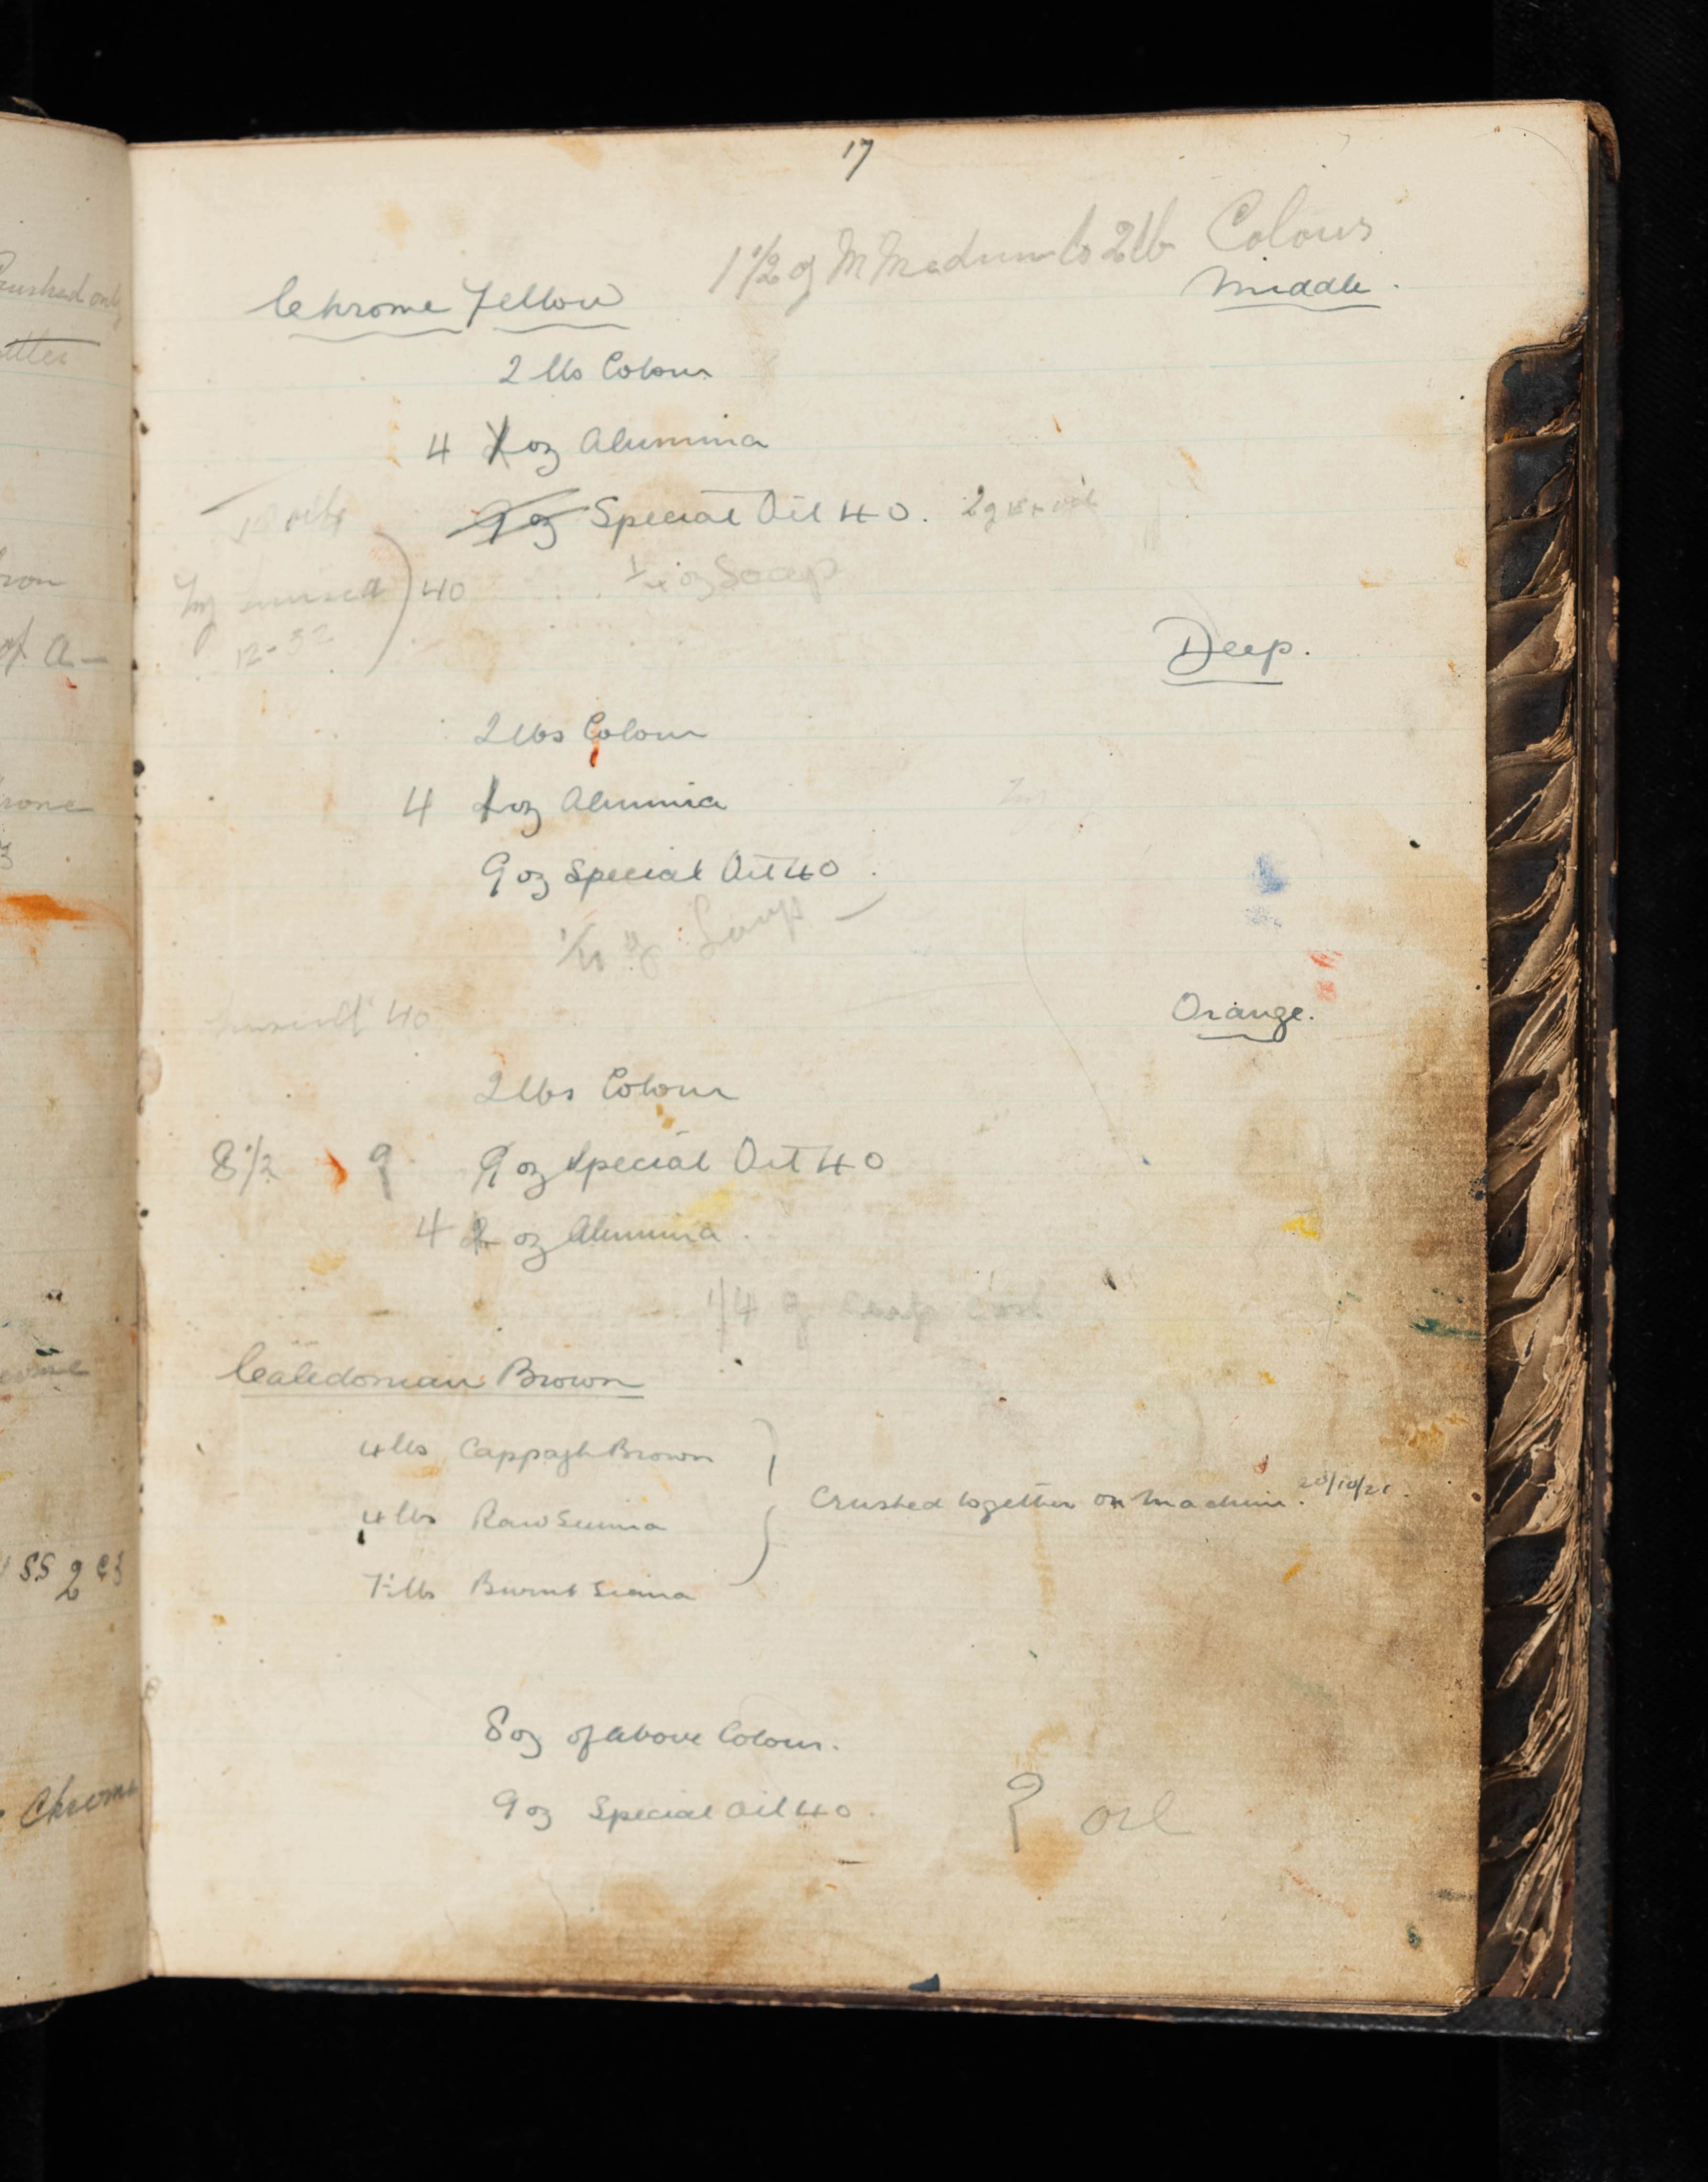 17
1 1/2 oz M Medium to 2 lb Colours
Chrome Yellow
Middle.
2 lbs Colour
4 oz Alumina
9 oz Special Oil 40.
1/4 oz Soap
40
12-32
Deep.
2 lbs Colour
4 oz Alumina
9 oz Special Oil 40.
1/10 oz Soap
40
Orange.
2 lbs Colour
8 1/2 9 9 oz Special Oil 40
4 2 oz Alumina.
1/4 oz
Caledonian Brown
4 lbs Cappagh Brown
4 lbs Raw Sienna
7 lbs Burnt Sienna
Crushed together on Machine. 20/10/21.
8 oz of above Colour.
9 oz Special Oil 40.
9 oil
of a -
SS 2
Chrome